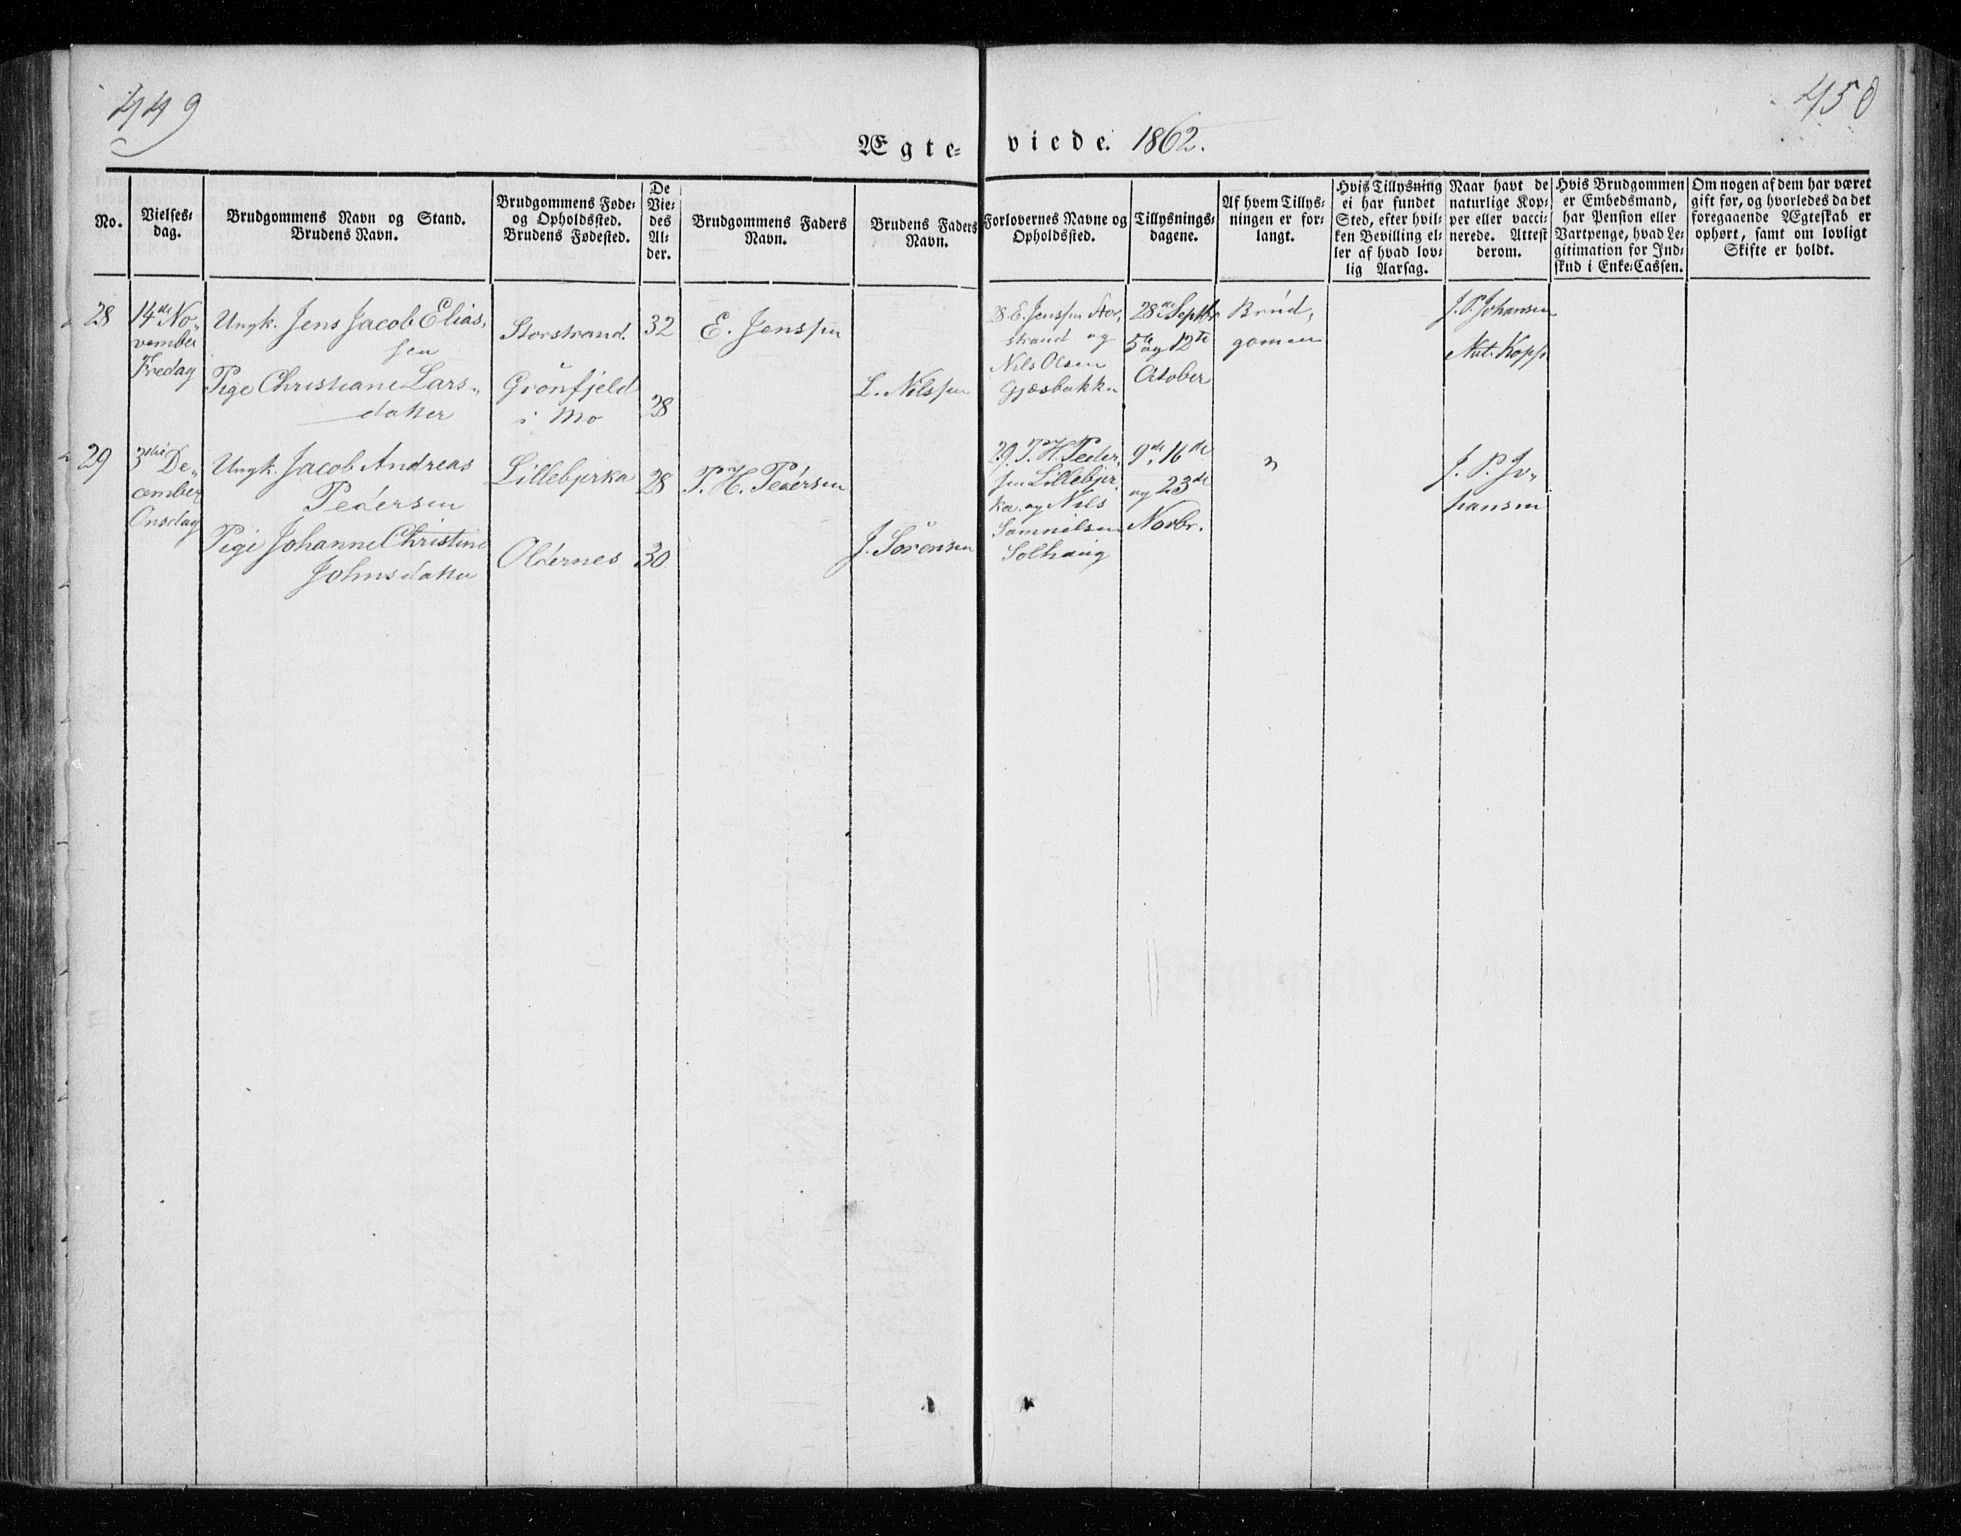 449
450
Ægte-viede. 1862.
No.
Vielses-
dag.
Brudgommens Navn og Stand.
Brudens Navn.
Brudgommens Føde-
og Opholdssted.
Brudens Fødested.
De
Vie-
des
Al-
der.
Brudgommens Faders
Navn.
Brudens Faders
Navn.
Forlovernes Navne og
Opholdssted.
Tillysnings-
dagene.
Af hvem Tillys-
ningen er for-
langt.
Hvis Tillysning
ei har fundet
Sted, efter hvil-
ken Bevilling el-
ler af hvad lov-
lig Aarsag.
Naar havt de
naturlige Kop-
per eller vacci-
nerede. Attest
derom.
Hvis Brudgommen
er Embedsmand,
har Pension eller
Vartpenge, hvad Le-
gitimation for Ind-
skud i Enke-Cassen.
Om nogen af dem har været
gift før, og hvorledes da det
foregaaende Ægteskab er
ophørt, samt om lovligt
Skifte er holdt.
28
14de No-
vember
Fredag
Ungk. Jens Jacob Elias-
sen
Pige Christiane Lars-
datter
Storstrand.
Grönfjeld
i Mo
32
28
E. Jenssen
L. Nilssen
28. E. Jenssen Stor-
strand og
Nils Olsen
Gjæsbakken
28de Septbr
5te og 12te
October
Brud-
gommen
J. P. Johansen
Nat. Kopp.
29
3die De-
cember
Onsdag
Ungk. Jacob Andreas
Pedersen
Pige Johanne Christine
Johnsdatter
Lillebjerka
Oldernes
28
30
P. H. Pedersen
J. Sörensen
29. P. H. Peder-
sen Lillebjer-
ka. og Nils
Samuelsen
Solhaug
9de, 16de
og 23de
Novbr.
"
J. P. Jo-
hansen